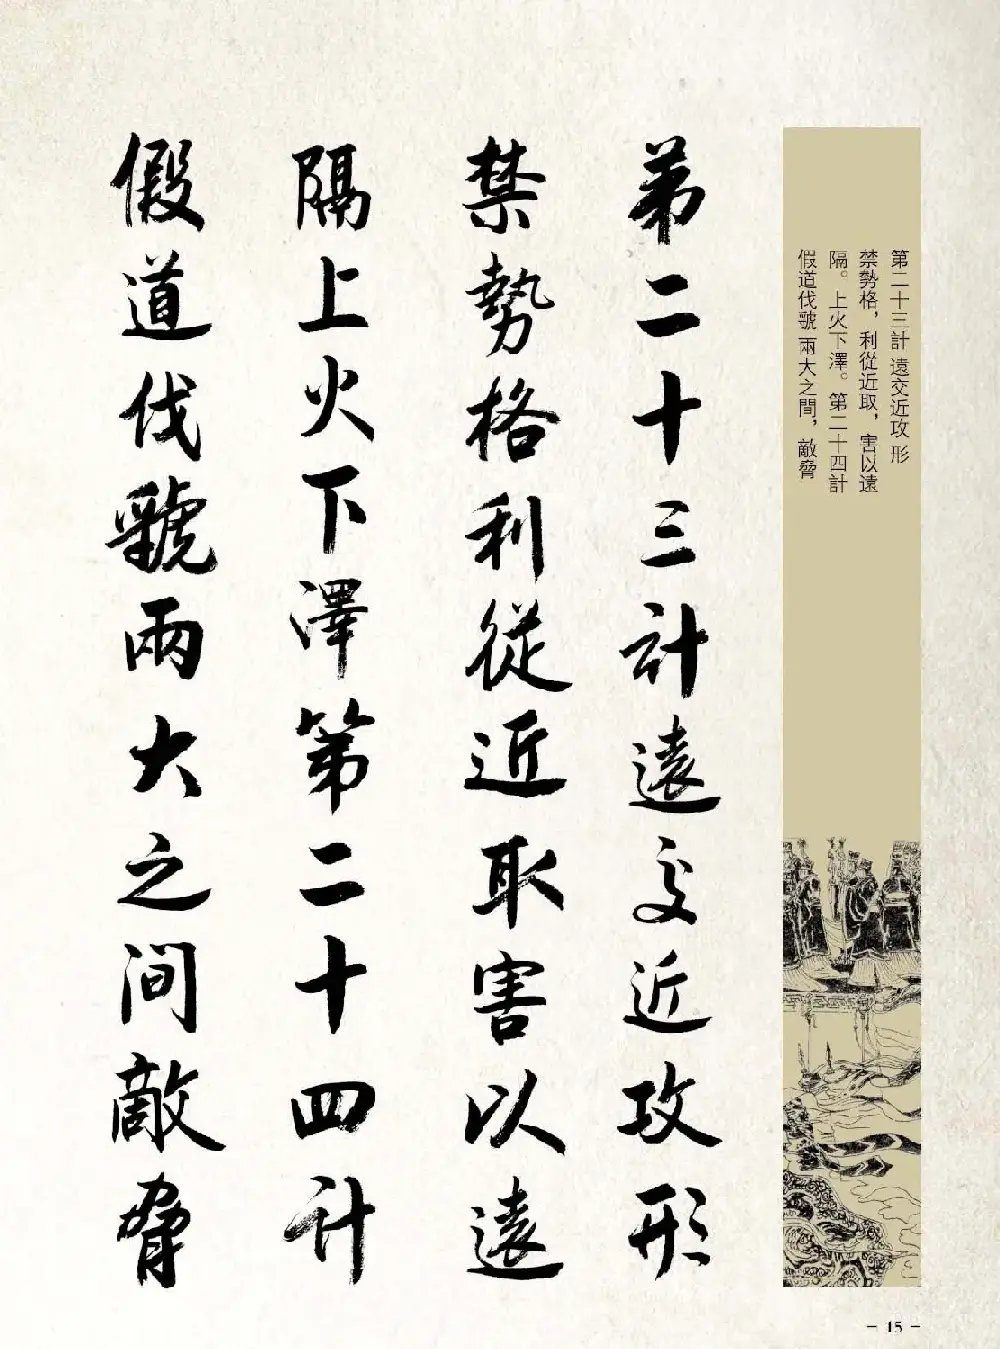 第二十三計 遠交近攻 形
禁勢格，利從近取，害以遠
隔。上火下澤。第二十四計
假道伐虢 兩大之間，敵脅
弟二十三計遠交近攻形
禁勢格利從近取害以遠
隔上火下澤第二十四計
假道伐虢兩大之間敵脅
- 15 -